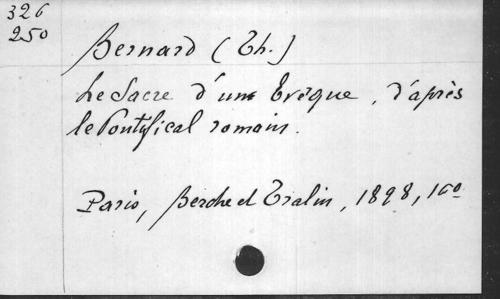 326
250
Bernard (Th.)
Le Sacre d'un Evêque, d'après
le Pontifical romain.
Paris, Berche et Tralin, 1898, 16o